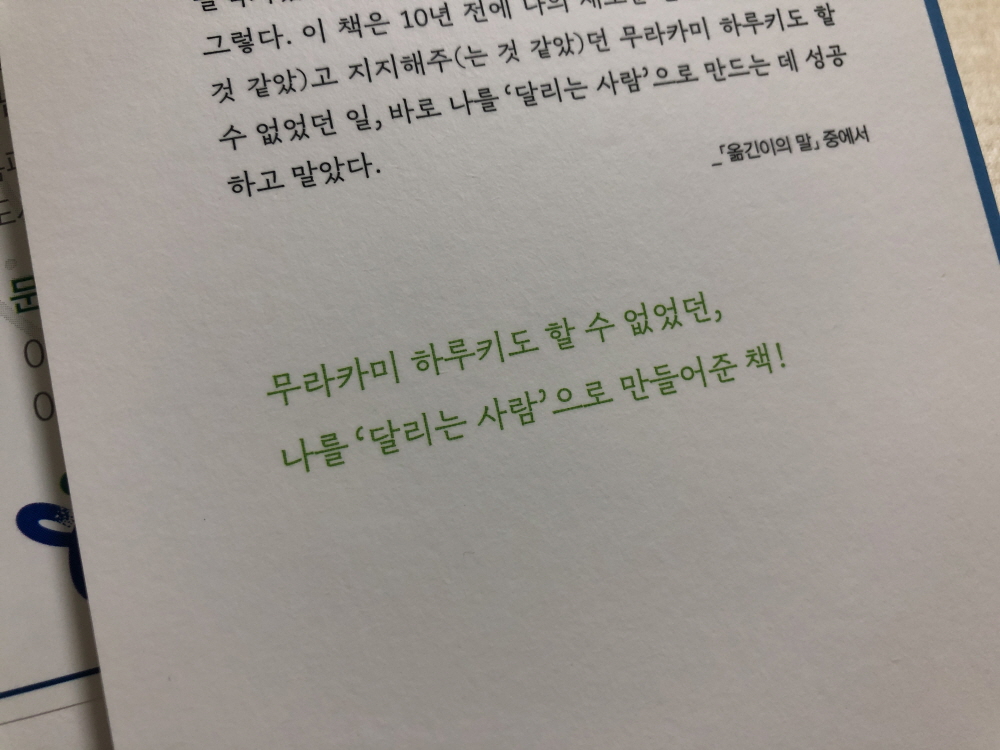 그렇다. 이 책은 10년 전에 나의
것 같았)고 지지해주(는 것 같았)던 무라카미 하루키도 할
수 없었던 일, 바로 나를 ‘달리는 사람’으로 만드는 데 성공
하고 말았다.
_「옮긴이의 말」 중에서
무라카미 하루키도 할 수 없었던,
나를 ‘달리는 사람’으로 만들어준 책!